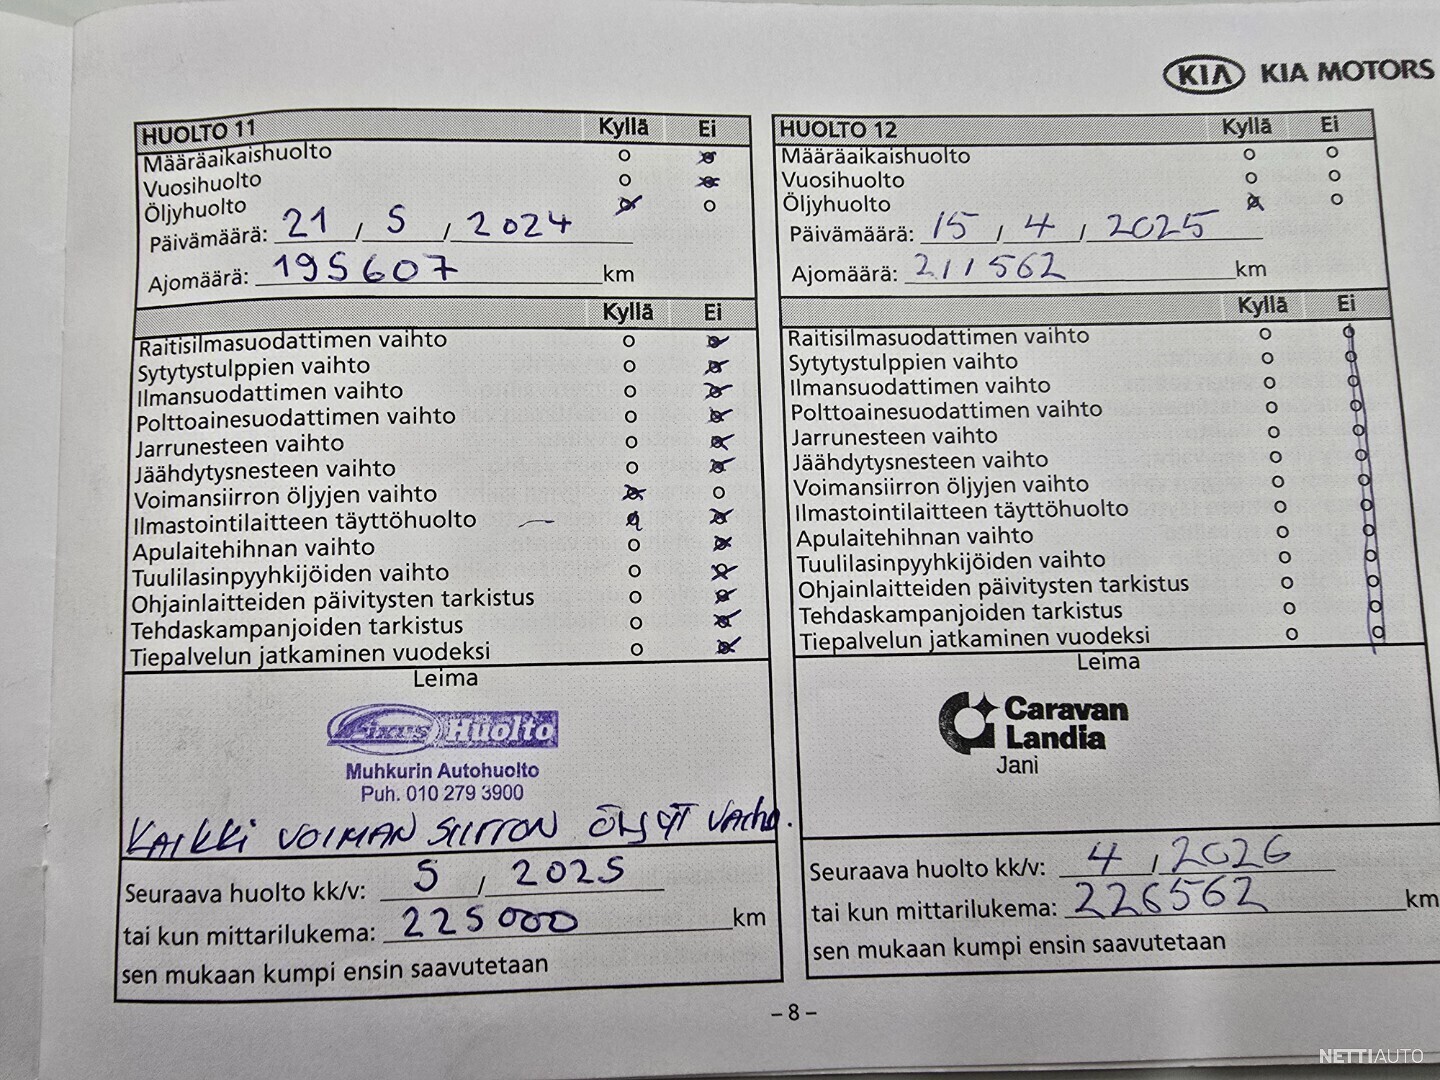 KIA KIA MOTORS
HUOLTO 11 Kyllä Ei
Määräaikaishuolto
Vuosihuolto
Öljyhuolto
Päivämäärä: 21 / 5 / 2024
Ajomäärä: 195607 km
Kyllä Ei
Raitisilmasuodattimen vaihto
Sytytystulppien vaihto
Ilmansuodattimen vaihto
Polttoainesuodattimen vaihto
Jarrunesteen vaihto
Jäähdytysnesteen vaihto
Voimansiirron öljyjen vaihto
Ilmastointilaitteen täyttöhuolto
Apulaitehihnan vaihto
Tuulilasinpyyhkijöiden vaihto
Ohjainlaitteiden päivitysten tarkistus
Tehdaskampanjoiden tarkistus
Tiepalvelun jatkaminen vuodeksi
Leima
Huolto
Muhkurin Autohuolto
Puh. 010 279 3900
KAIKKI VOIMAN SIIRRON ÖLJYT Vaihd.
Seuraava huolto kk/v: 5 / 2025
tai kun mittarilukema: 225000 km
sen mukaan kumpi ensin saavutetaan
HUOLTO 12 Kyllä Ei
Määräaikaishuolto
Vuosihuolto
Öljyhuolto
Päivämäärä: 15 / 4 / 2025
Ajomäärä: 211562 km
Kyllä Ei
Raitisilmasuodattimen vaihto
Sytytystulppien vaihto
Ilmansuodattimen vaihto
Polttoainesuodattimen vaihto
Jarrunesteen vaihto
Jäähdytysnesteen vaihto
Voimansiirron öljyjen vaihto
Ilmastointilaitteen täyttöhuolto
Apulaitehihnan vaihto
Tuulilasinpyyhkijöiden vaihto
Ohjainlaitteiden päivitysten tarkistus
Tehdaskampanjoiden tarkistus
Tiepalvelun jatkaminen vuodeksi
Leima
Caravan
Landia
Jani
Seuraava huolto kk/v: 4 / 2026
tai kun mittarilukema: 226562 km
sen mukaan kumpi ensin saavutetaan
– 8 –
NETTIAUTO